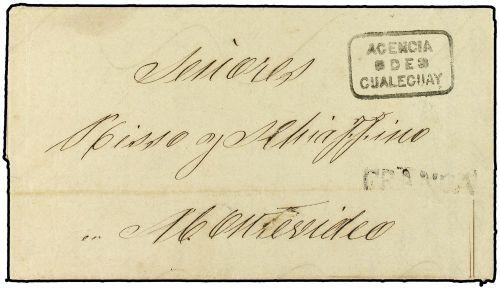 AGENCIA
DE
GUALEGUAY
Señores
Risso y Schiaffino
Montevideo